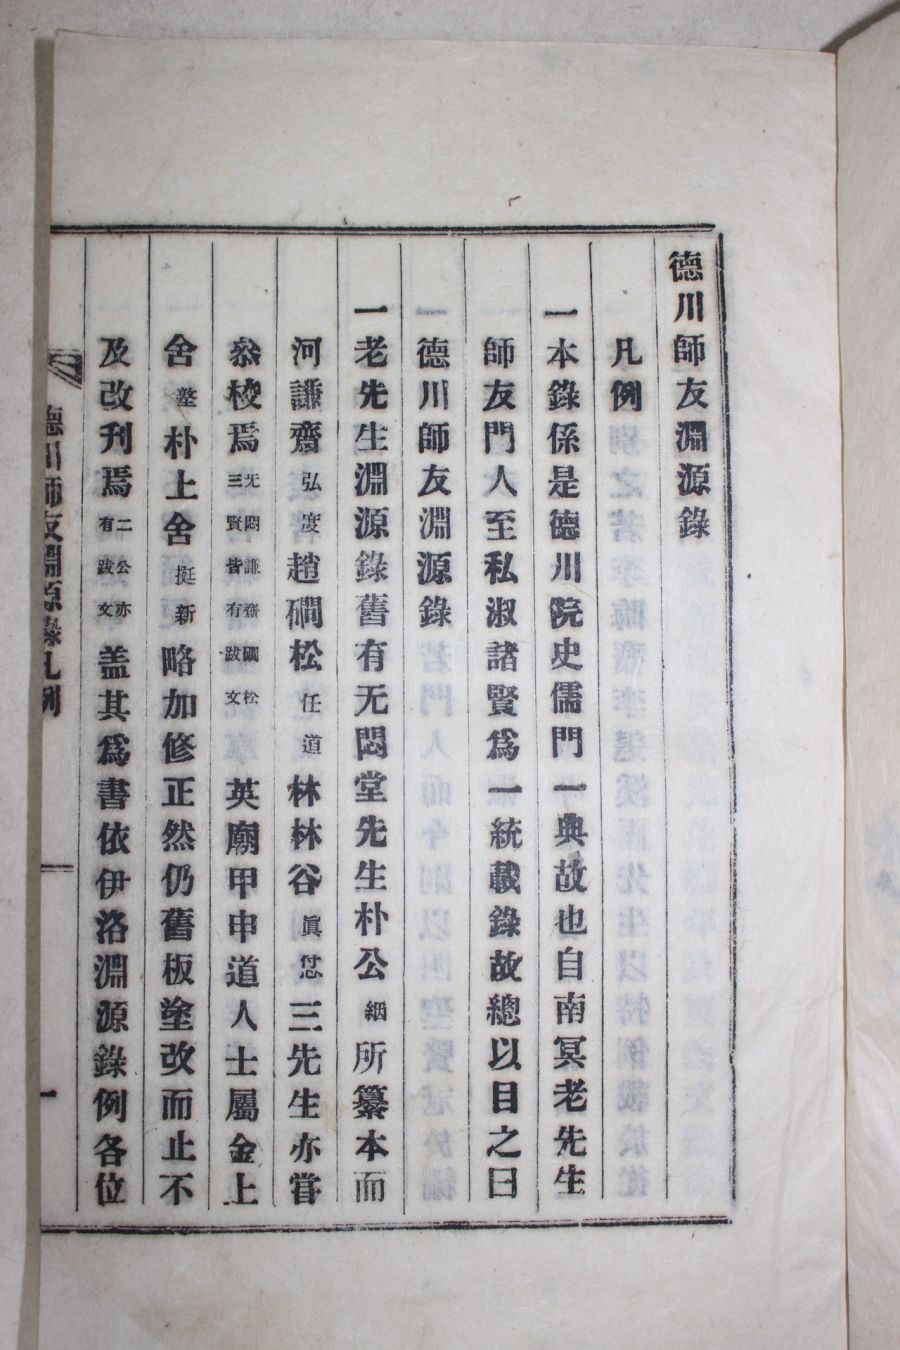 德川師友淵源錄
凡例
一本錄係是德川院史儒門一典故也自南冥老先生
師友門人至私淑諸賢爲一統載錄故總以目之曰
德川師友淵源錄
一老先生淵源錄舊有无悶堂先生朴公絪所纂本而
河謙齋弘度趙磵松任道林林谷眞怤三先生亦嘗
叅校焉无悶謙齋磵松三賢皆有跋文英廟甲申道人士屬金上
舍㙺朴上舍挺新略加修正然仍舊板塗改而止不
及改刊焉二公亦有跋文盖其爲書依伊洛淵源錄例各位
德川師友淵源錄凡例
一